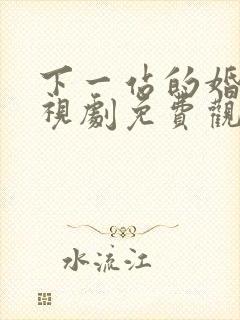 下一佔的婚
視劇免費觀
水流江